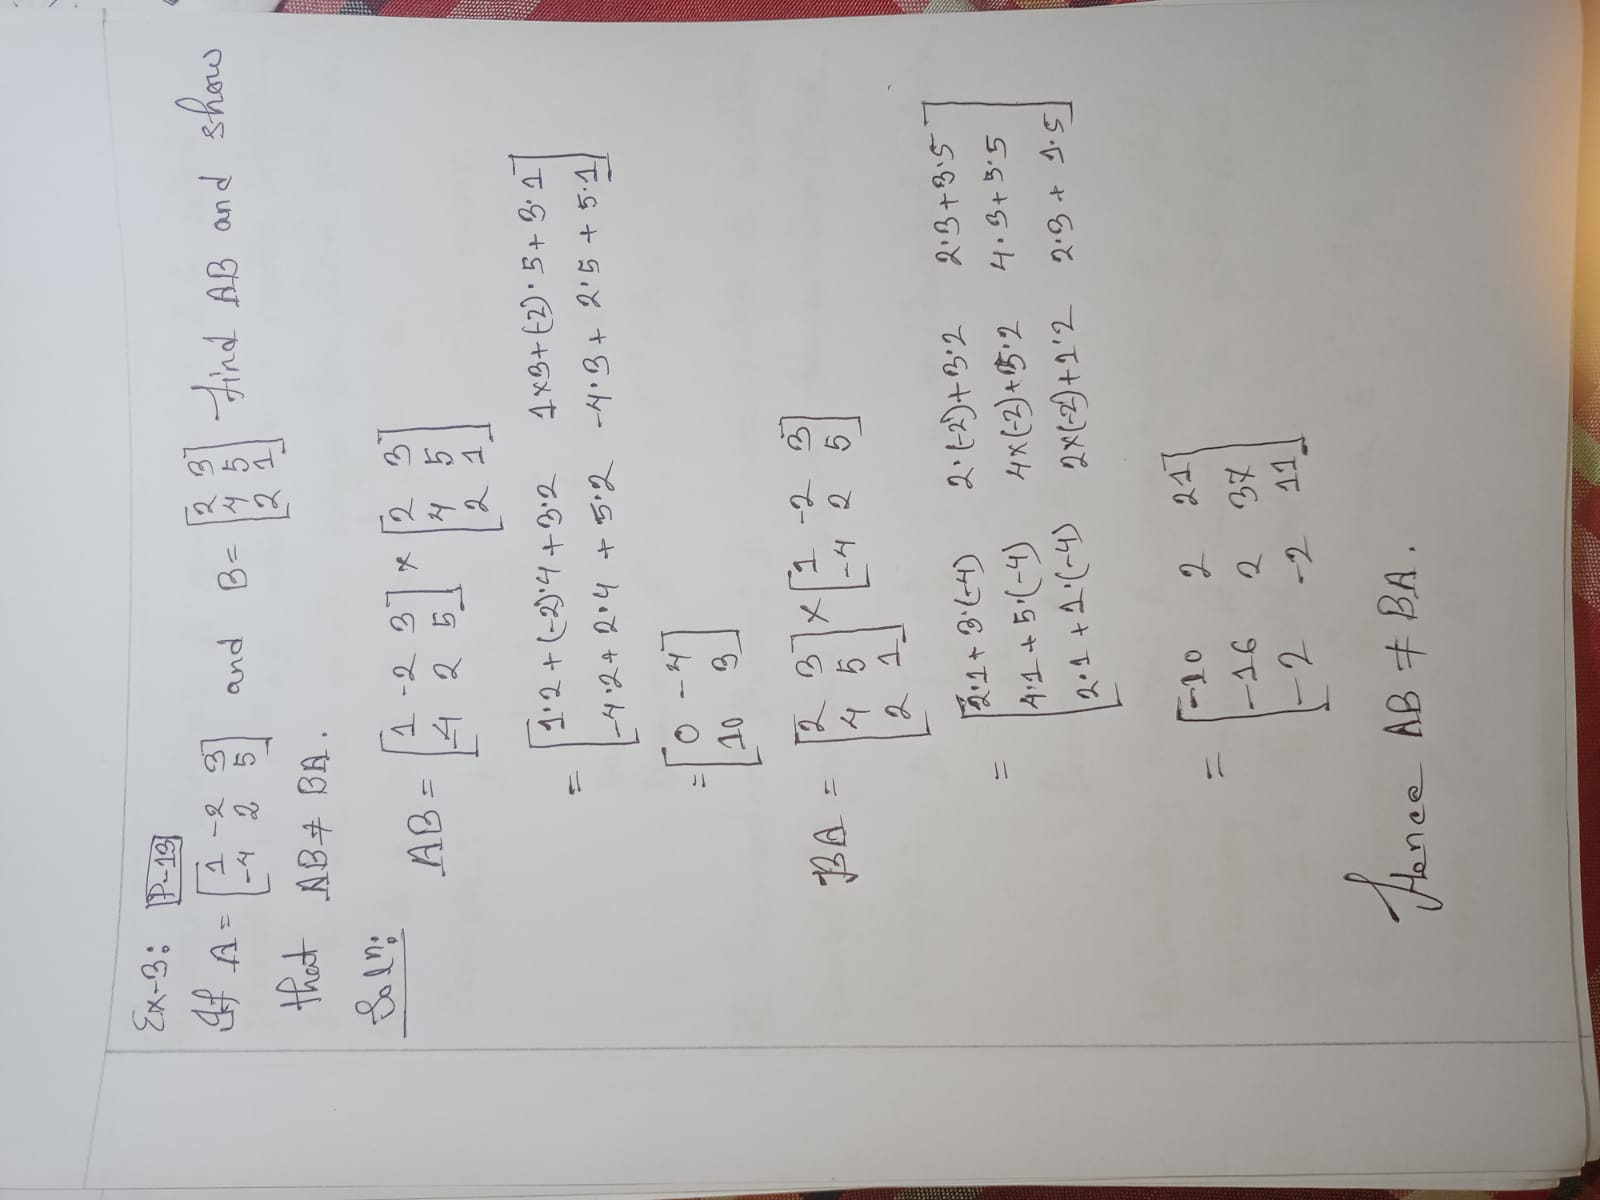 Ex-3: P-13
If A = [1 -2 3; -4 2 5] and B = [2 3; 4 5; 2 1] find AB and show
that AB ≠ BA.
Soln:
AB = [1 -2 3; -4 2 5] × [2 3; 4 5; 2 1]
= [1·2 + (-2)·4 + 3·2   1×3 + (-2)·5 + 3·1; -4·2 + 2·4 + 5·2   -4·3 + 2·5 + 5·1]
= [0 -4; 10 3]
BA = [2 3; 4 5; 2 1] × [1 -2 3; -4 2 5]
= [2·1 + 3·(-4)   2·(-2) + 3·2   2·3 + 3·5; 4·1 + 5·(-4)   4×(-2) + 5·2   4·3 + 5·5; 2·1 + 1·(-4)   2×(-2) + 1·2   2·3 + 1·5]
= [-10 2 21; -16 2 37; -2 -2 11]
Hence AB ≠ BA.